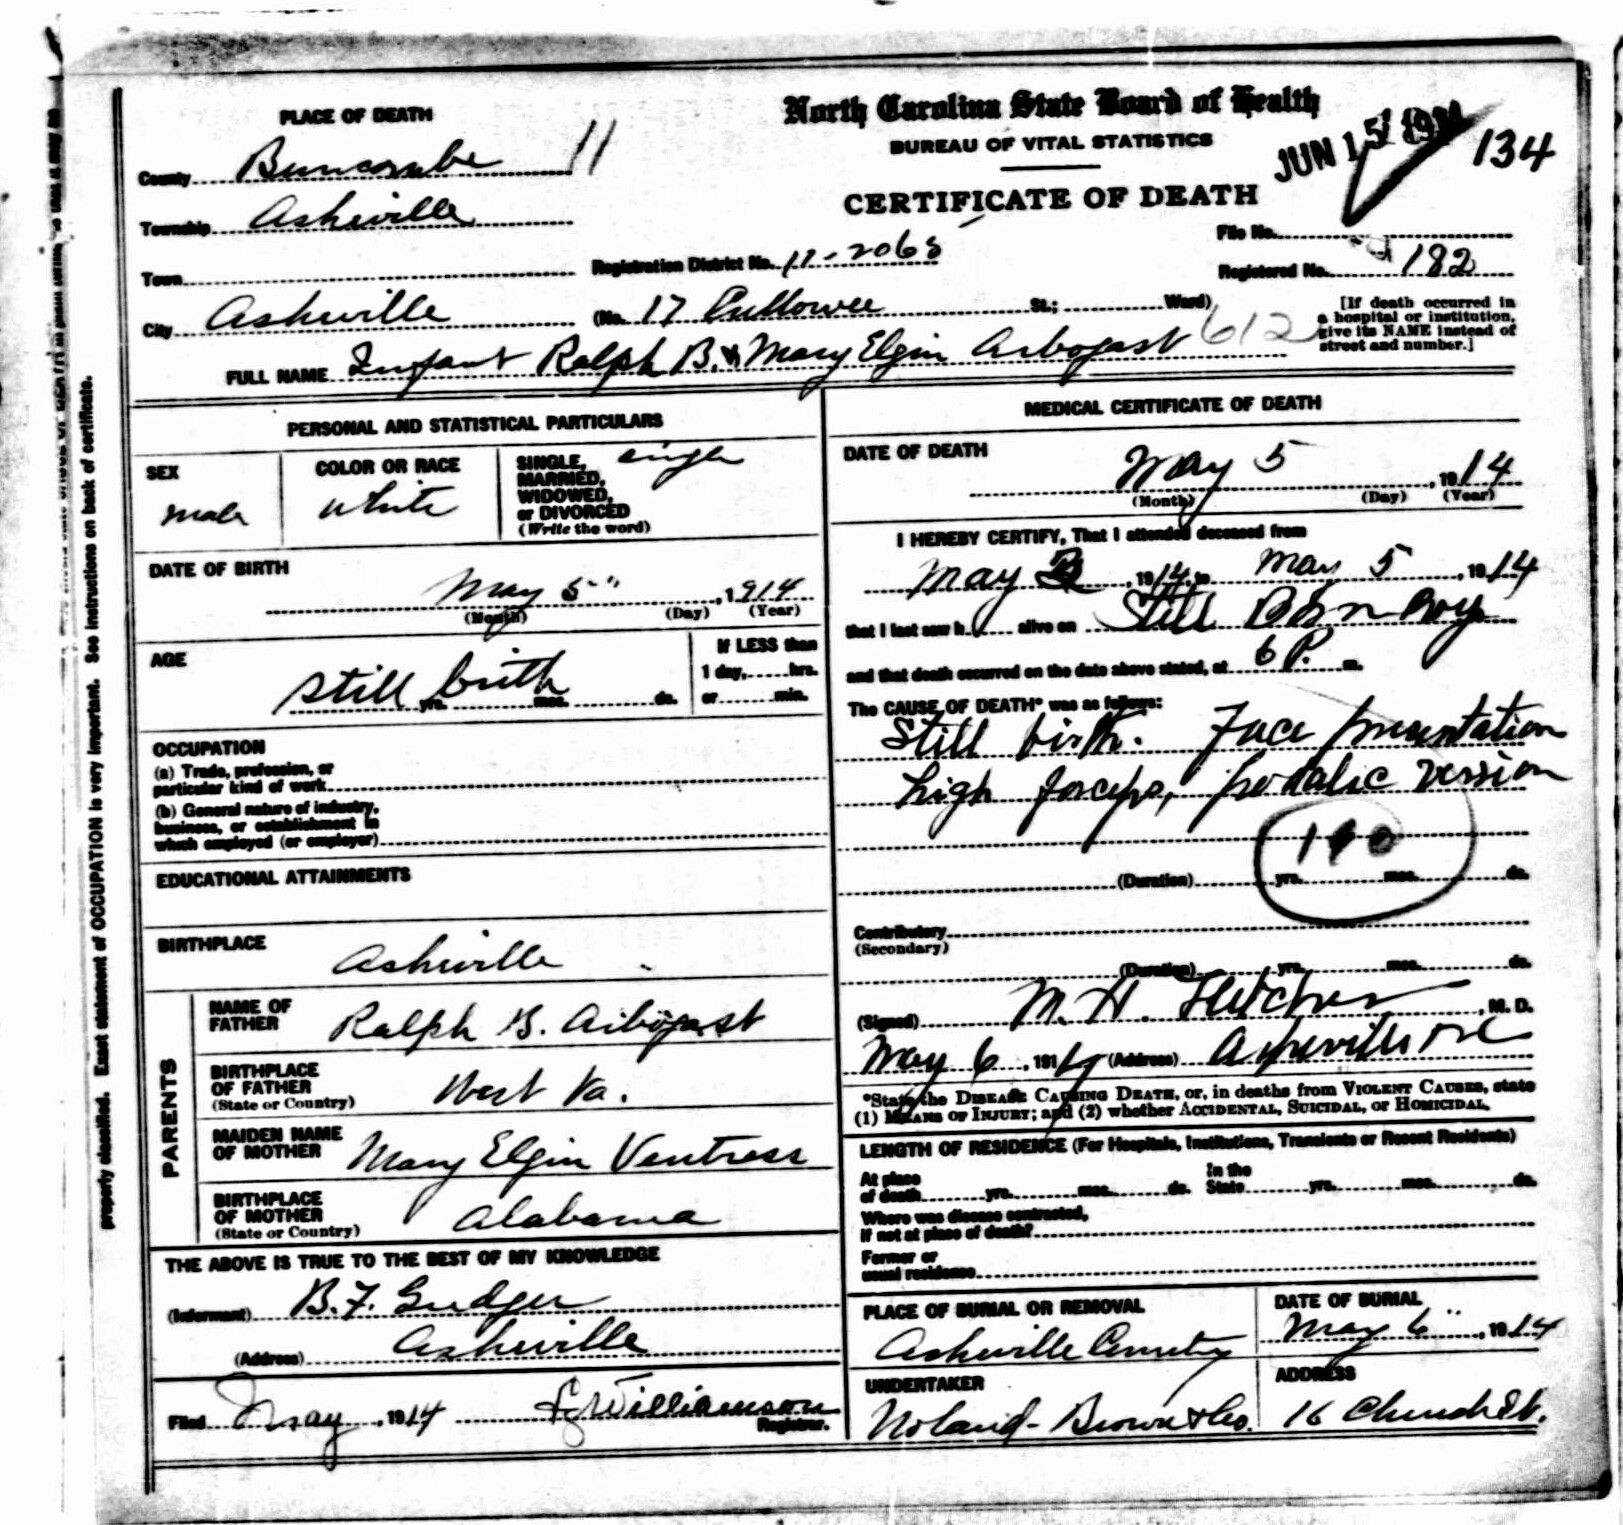 North Carolina State Board of Health
BUREAU OF VITAL STATISTICS
CERTIFICATE OF DEATH
JUN 15 1914
134
PLACE OF DEATH
County Buncombe 11
Township Asheville
Town
Registration District No. 11-2065
File No.
Registered No. 182
City Asheville (No. 17 Cullowee St.; Ward)
[If death occurred in
a hospital or institution,
give its NAME instead of
street and number.]
612
FULL NAME Infant Ralph B. & Mary Elgin Arbogast
PERSONAL AND STATISTICAL PARTICULARS
SEX
male
COLOR OR RACE
white
SINGLE,
MARRIED,
WIDOWED,
or DIVORCED
(Write the word)
single
DATE OF BIRTH
May 5" , 1914
(Month) (Day) (Year)
AGE
still birth
yrs. mos. ds.
If LESS than
1 day, hrs.
or min.
OCCUPATION
(a) Trade, profession, or
particular kind of work
(b) General nature of industry,
business, or establishment in
which employed (or employer)
EDUCATIONAL ATTAINMENTS
BIRTHPLACE
Asheville
PARENTS
NAME OF
FATHER
Ralph B. Arbogast
BIRTHPLACE
OF FATHER
(State or Country)
West Va.
MAIDEN NAME
OF MOTHER
Mary Elgin Ventress
BIRTHPLACE
OF MOTHER
(State or Country)
Alabama
THE ABOVE IS TRUE TO THE BEST OF MY KNOWLEDGE
(Informant) B. F. Gudger
(Address) Asheville
Filed May , 1914 Williamson
Registrar.
MEDICAL CERTIFICATE OF DEATH
DATE OF DEATH
May 5 , 1914
(Month) (Day) (Year)
I HEREBY CERTIFY, That I attended deceased from
May , 1914, to May 5 , 1914
that I last saw h alive on Still Born Boy
and that death occurred on the date above stated, at 6 P. m.
The CAUSE OF DEATH* was as follows:
Still birth. Face presentation
high forceps, podalic version
(Duration) yrs. mos. ds.
Contributory
(Secondary)
(Duration) yrs. mos. ds.
(Signed) M. H. Fletcher , M. D.
May 6 , 1914 (Address) Asheville NC
*State the DISEASE CAUSING DEATH, or, in deaths from VIOLENT CAUSES, state
(1) MEANS OF INJURY; and (2) whether ACCIDENTAL, SUICIDAL, or HOMICIDAL.
LENGTH OF RESIDENCE (For Hospitals, Institutions, Transients or Recent Residents)
At place
of death yrs. mos. ds.
In the
State yrs. mos. ds.
Where was disease contracted,
if not at place of death?
Former or
usual residence
PLACE OF BURIAL OR REMOVAL
Asheville Cemetry
DATE OF BURIAL
May 6" , 1914
UNDERTAKER
Noland-Brown & Co.
ADDRESS
16 Church St.
properly classified. Exact statement of OCCUPATION is very important. See instructions on back of certificate.